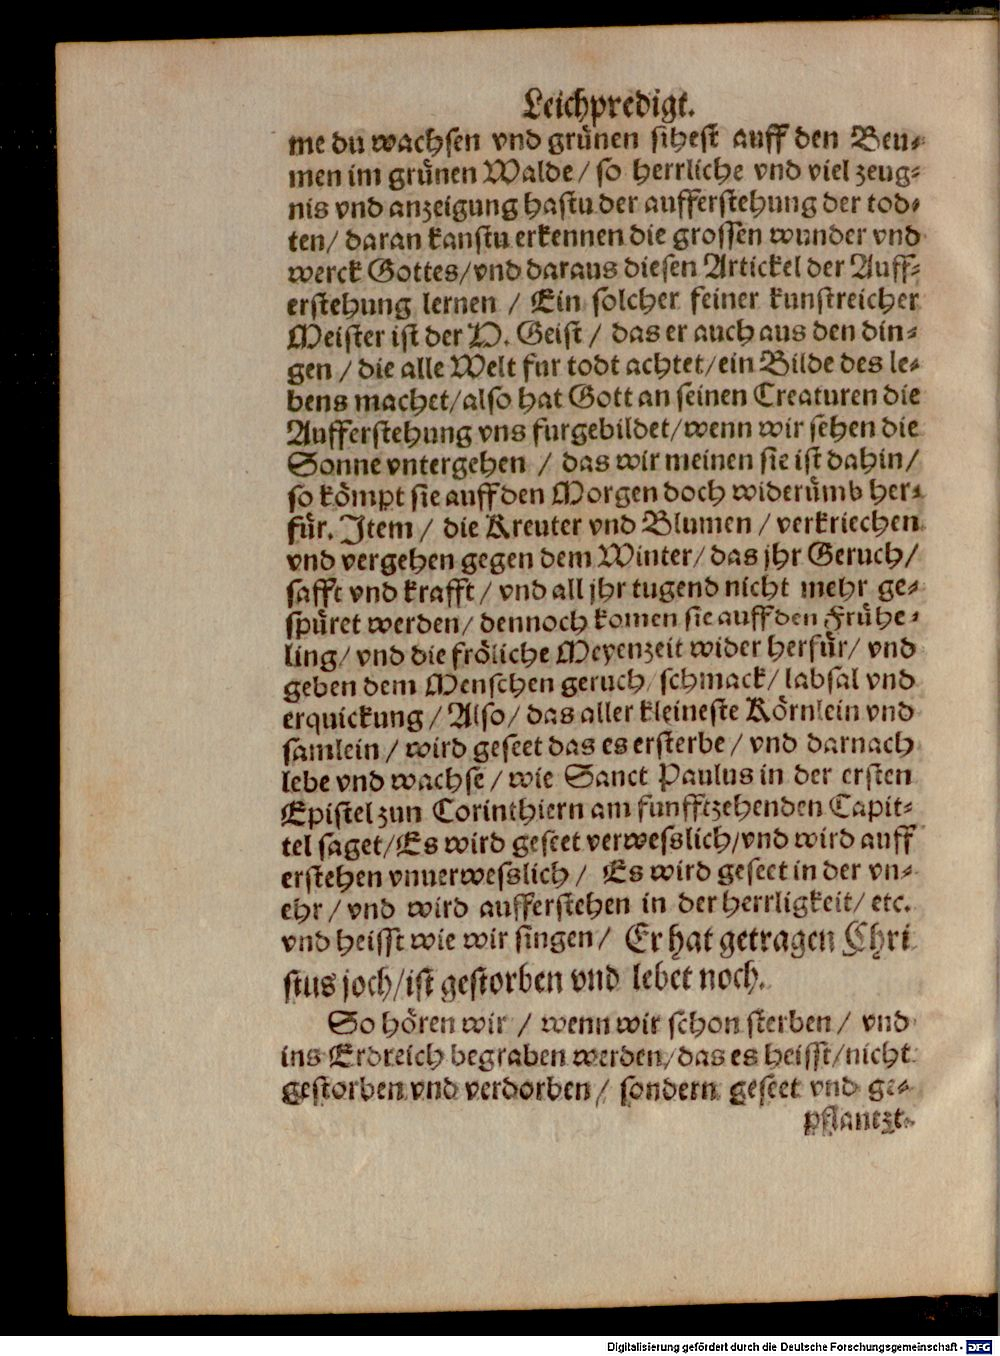 Leichpredigt.
me du wachsen vnd grünen sihest auff den Beu-
men im grünen Walde / so herrliche vnd viel zeug-
nis vnd anzeigung hastu der aufferstehung der tod-
ten / daran kanstu erkennen die grossen wunder vnd
werck Gottes / vnd daraus diesen Artickel der Auff-
erstehung lernen / Ein solcher feiner kunstreicher
Meister ist der H. Geist / das er auch aus den din-
gen / die alle Welt fur todt achtet / ein Bilde des le-
bens machet / also hat Gott an seinen Creaturen die
Aufferstehung vns furgebildet / wenn wir sehen die
Sonne vntergehen / das wir meinen sie ist dahin /
so kömpt sie auff den Morgen doch widerümb her-
für. Item / die Kreuter vnd Blumen / verkriechen
vnd vergehen gegen dem Winter / das jhr Geruch /
safft vnd krafft / vnd all jhr tugend nicht mehr ge-
spüret werden / dennoch komen sie auff den Frühe-
ling / vnd die fröliche Meyenzeit wider herfür / vnd
geben dem Menschen geruch / schmack / labsal vnd
erquickung / Also / das aller kleineste Körnlein vnd
samlein / wird geseet das es ersterbe / vnd darnach
lebe vnd wachse / wie Sanct Paulus in der ersten
Epistel zun Corinthiern am funfftzehenden Capit-
tel saget / Es wird geseet verwesslich / vnd wird auff
erstehen vnuerwesslich / Es wird geseet in der vn-
ehr / vnd wird aufferstehen in der herrligkeit / etc.
vnd heisst wie wir singen / Er hat getragen Chri
stus joch / ist gestorben vnd lebet noch.
So hören wir / wenn wir schon sterben / vnd
ins Erdreich begraben werden / das es heisst / nicht
gestorben vnd verdorben / sondern geseet vnd ge-
pflantzt.
Digitalisierung gefördert durch die Deutsche Forschungsgemeinschaft - DFG